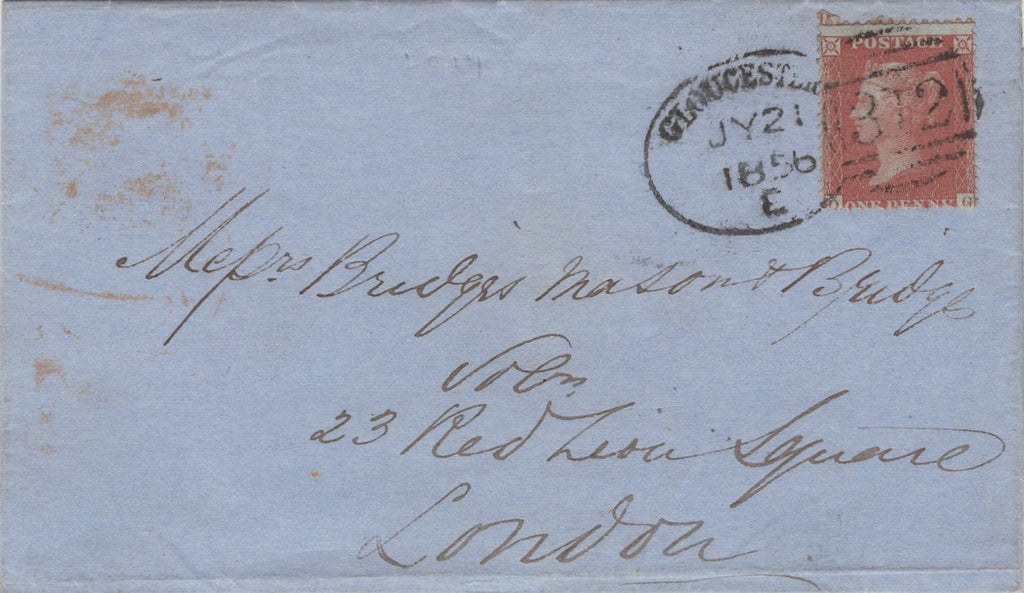 GLOUCESTER
JY 21
1856
E
312
POSTAGE
ONE PENNY
G
Messrs Bridges Mason & Bridges
Solrs
23 Red Lion Square
London